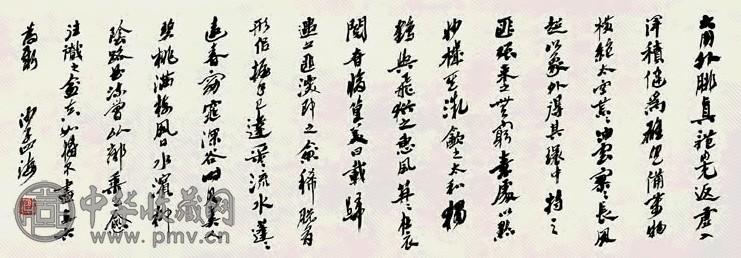 大用外腓真體內充返虛入
渾積健為雄具備萬物
橫絕太空荒荒油雲寥寥長風
超以象外得其環中持之
匪強來之無窮素處以默
妙機其微飲之太和獨
鶴與飛猶之惠風荏苒在衣
閱音修篁美曰載歸
遇之匪深即之愈稀脫有
形似握手已違采采流水蓬蓬
遠春窈窕深谷時見美人
碧桃滿樹風日水濱柳
陰路曲流鶯比鄰乘之愈
往識之愈真如將不盡與古
為新 沙孟海
中华收藏网
www.pmv.cn